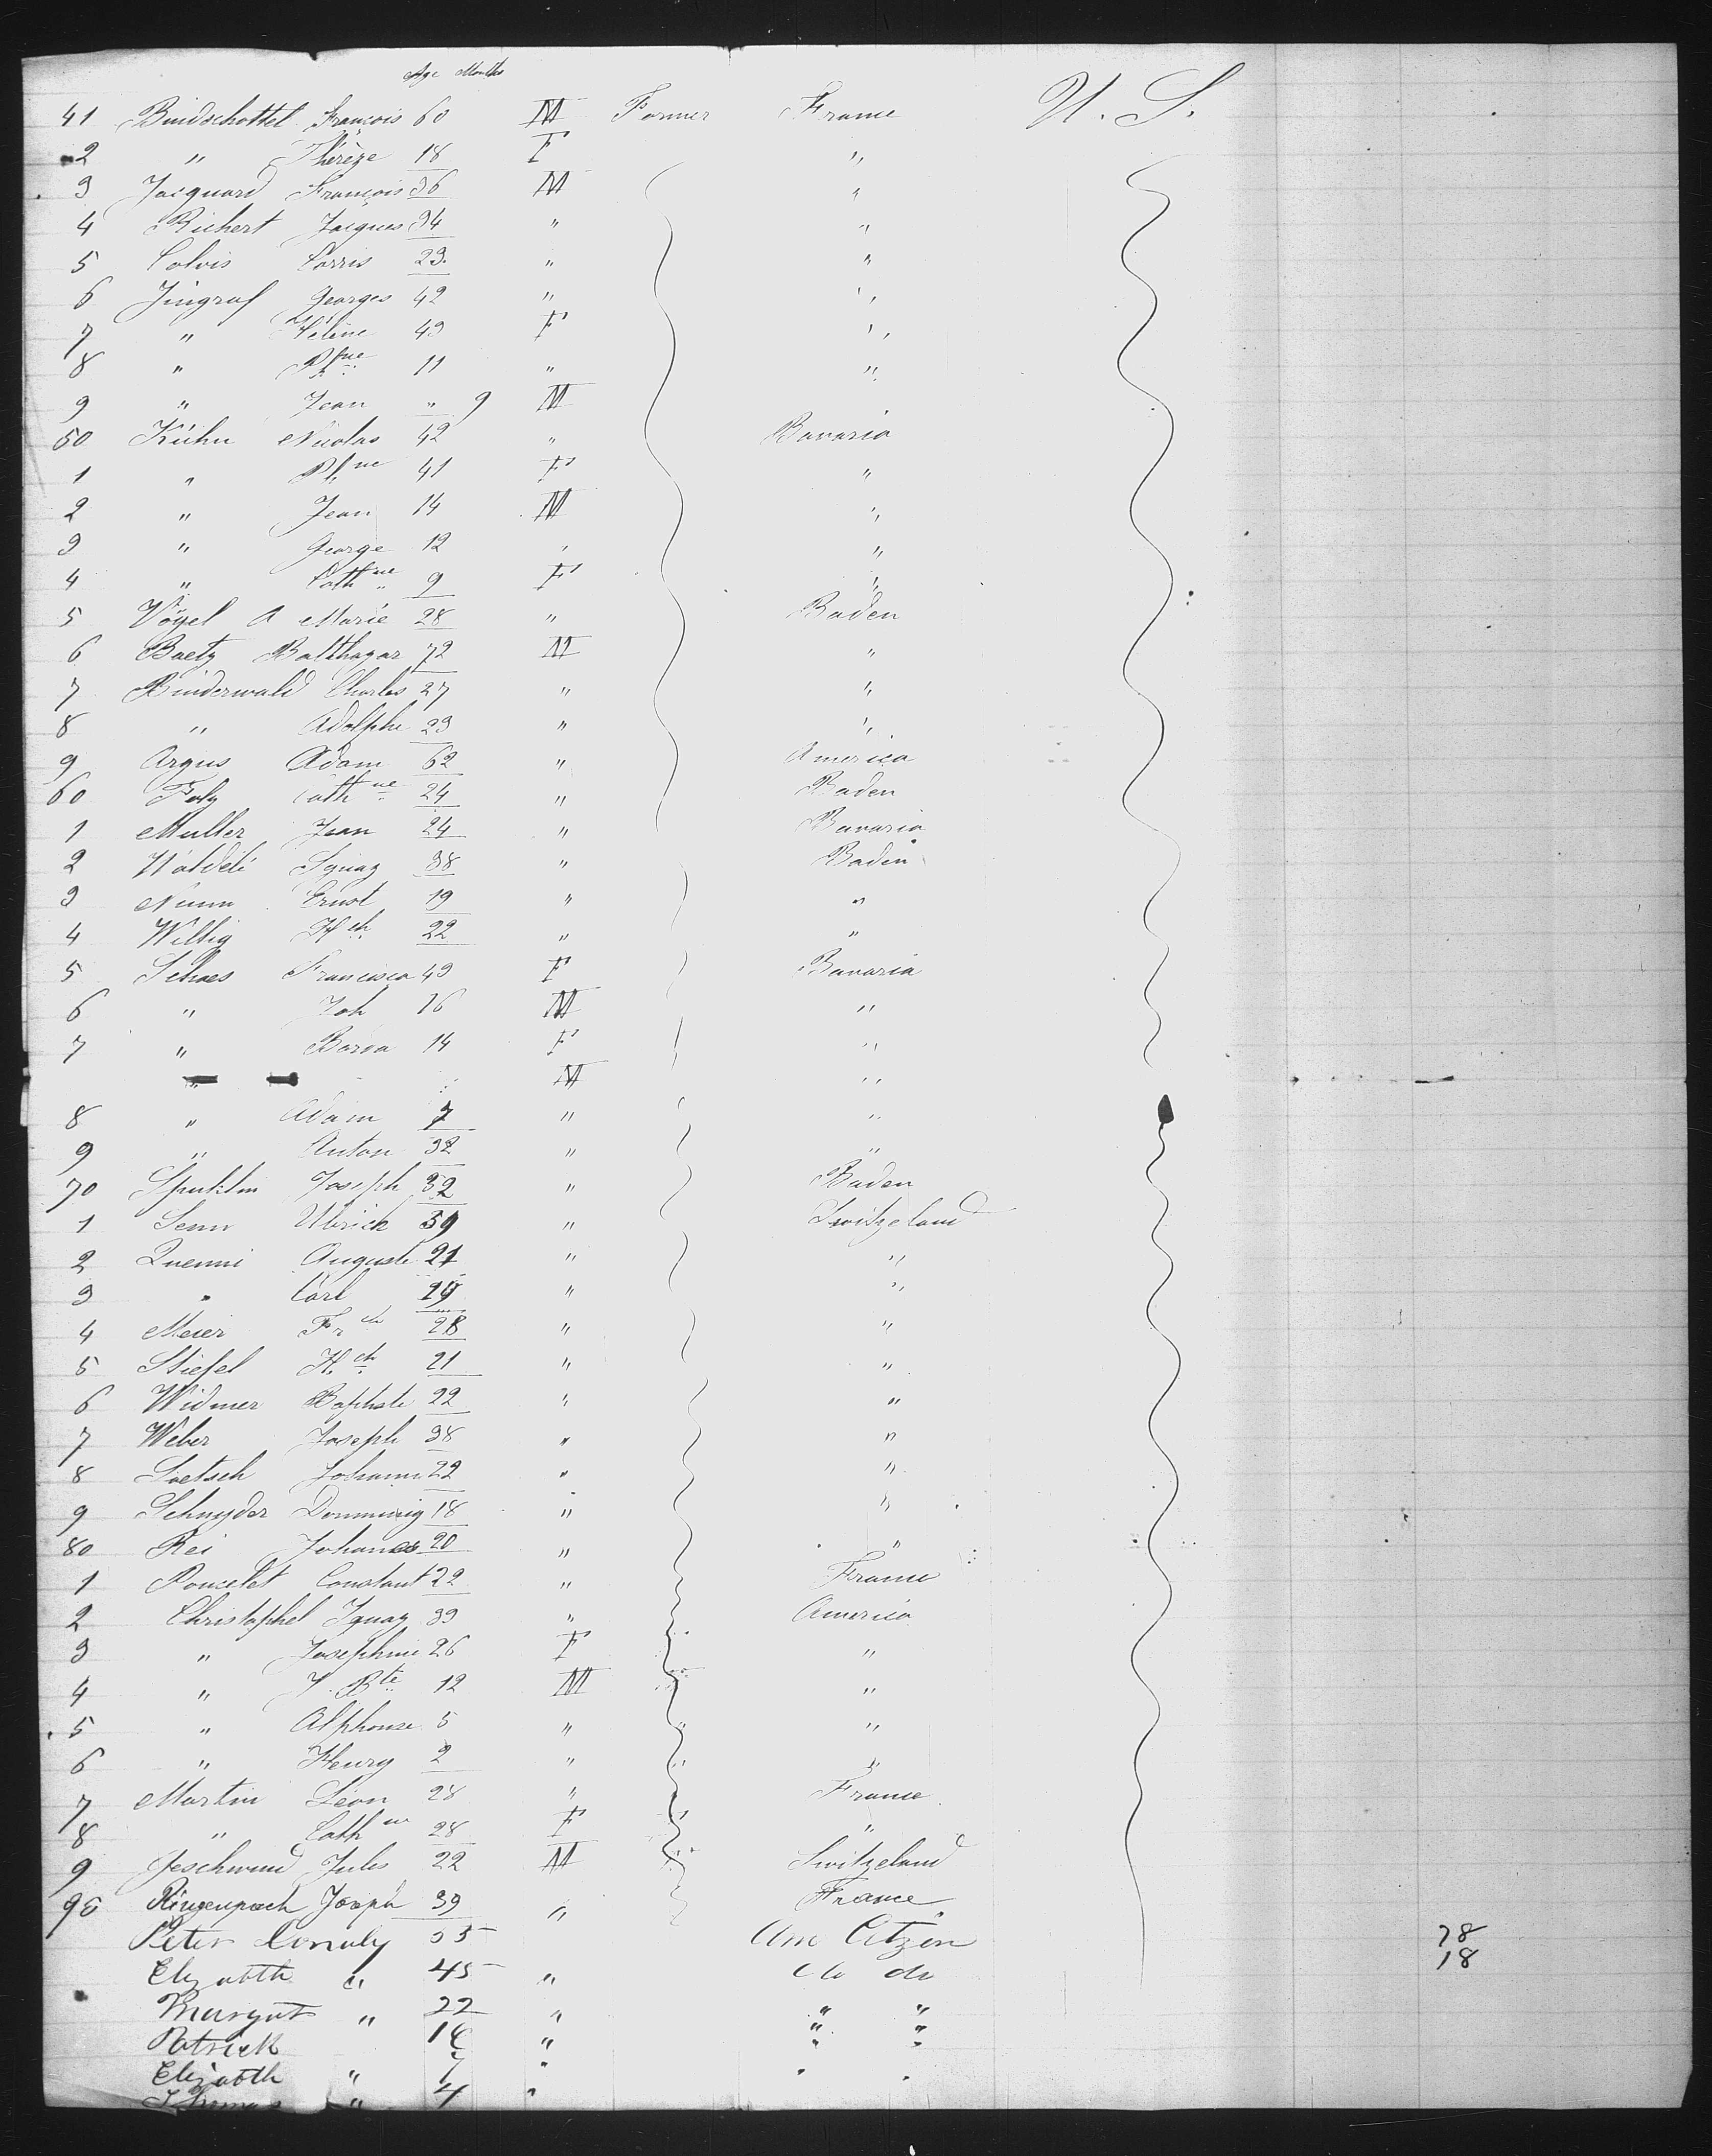 Age Months
41 Bindschottel François 60 M Farmer France U. S.
2 " Thérèze 18 F "
3 Jacquard François 36 M "
4 Richert Jacques 34 " "
5 Calvis 23 " "
6 Jüngraf Georges 42 " "
7 " Hélène 43 F "
8 " 11 " "
9 " Jean " 9 M
50 Kühn Nicolas 42 " Bavaria
1 " 41 F "
2 " Jean 14 M "
3 " George 12 " "
4 " Cathne 9 F "
5 Vögel A Marie 28 " Baden
6 Baetz Balthazar 72 M "
7 Binderwald Charles 27 " "
8 " Adolphe 23 " "
9 Argus Adam 62 " America
60 Foly Cathne 24 " Baden
1 Muller Jean 24 " Bavaria
2 Wäldele Ignaz 38 " Baden
3 Numm Ernst 19 " "
4 Willig Hch 22 " "
5 Schaes Francisca 49 F Bavaria
6 " Joh 16 M "
7 " Barba 14 F "
" M "
8 " Adam 7 " "
9 " Anton 32 " "
70 Joseph 32 " Baden
1 Senn Ulrich 39 " Switzeland
2 Quenni Auguste 21 " "
3 " Carl 29 " "
4 Meier Frch 28 " "
5 Stiefel Hch 21 " "
6 Widmer Baptiste 22 " "
7 Weber Joseph 38 " "
8 Loetsch Johann 22 " "
9 Schnyder Domminig 18 " "
80 Rei Johannes 20 " "
1 Poncelet Constant 22 " France
2 Christophel Ignaz 39 " America
3 " Josephine 26 F "
4 " J. Bte 12 M "
5 " Alphonse 5 " " "
6 " Henry 2 " " "
7 Martin Léon 28 " France
8 " Cathne 28 F " "
9 Geschwind Jules 22 M " Switzeland
90 Ringenpach Joseph 39 " France
Peter Conaly 55 Am Citzen
Elizabth " 45 " do do
Margut " 22 " " "
Patrick " " "
Elizabth " 7 " " "
Thomas " 4 "
78
18